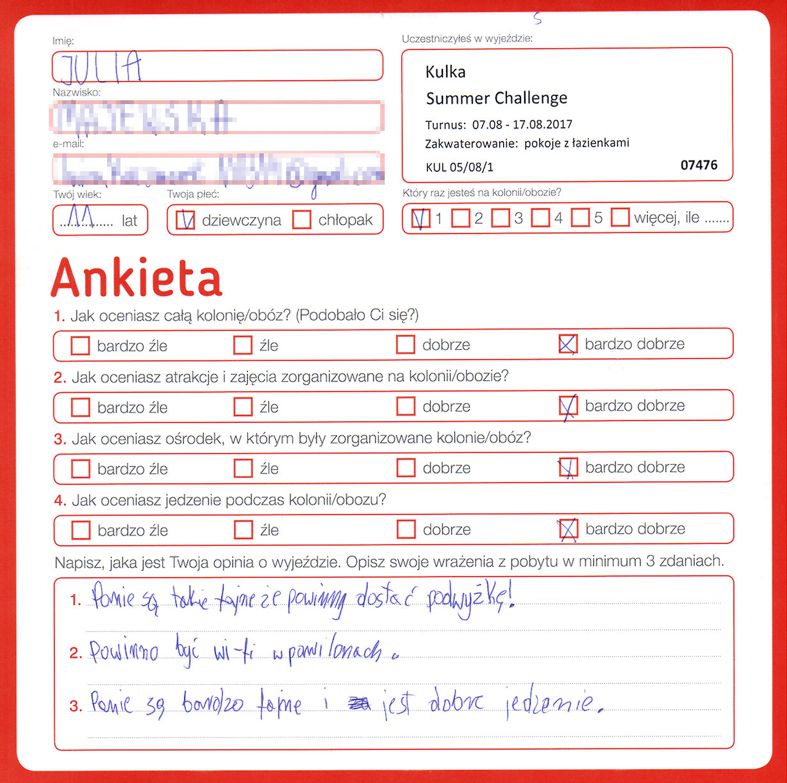 s
Imię:
Uczestniczyłeś w wyjeździe:
JULIA
Kulka
Nazwisko:
Summer Challenge
Turnus: 07.08 - 17.08.2017
e-mail:
Zakwaterowanie: pokoje z łazienkami
KUL 05/08/1 07476
Twój wiek: Twoja płeć: Który raz jesteś na kolonii/obozie?
11 lat dziewczyna chłopak 1 2 3 4 5 więcej, ile .......
Ankieta
1. Jak oceniasz całą kolonię/obóz? (Podobało Ci się?)
bardzo źle źle dobrze bardzo dobrze
2. Jak oceniasz atrakcje i zajęcia zorganizowane na kolonii/obozie?
bardzo źle źle dobrze bardzo dobrze
3. Jak oceniasz ośrodek, w którym były zorganizowane kolonie/obóz?
bardzo źle źle dobrze bardzo dobrze
4. Jak oceniasz jedzenie podczas kolonii/obozu?
bardzo źle źle dobrze bardzo dobrze
Napisz, jaka jest Twoja opinia o wyjeździe. Opisz swoje wrażenia z pobytu w minimum 3 zdaniach.
1. Panie są takie fajne że powinny dostać podwyżkę!
2. Powinno być wi-fi w pawilonach.
3. Panie są bardzo fajne i jest dobre jedzenie.